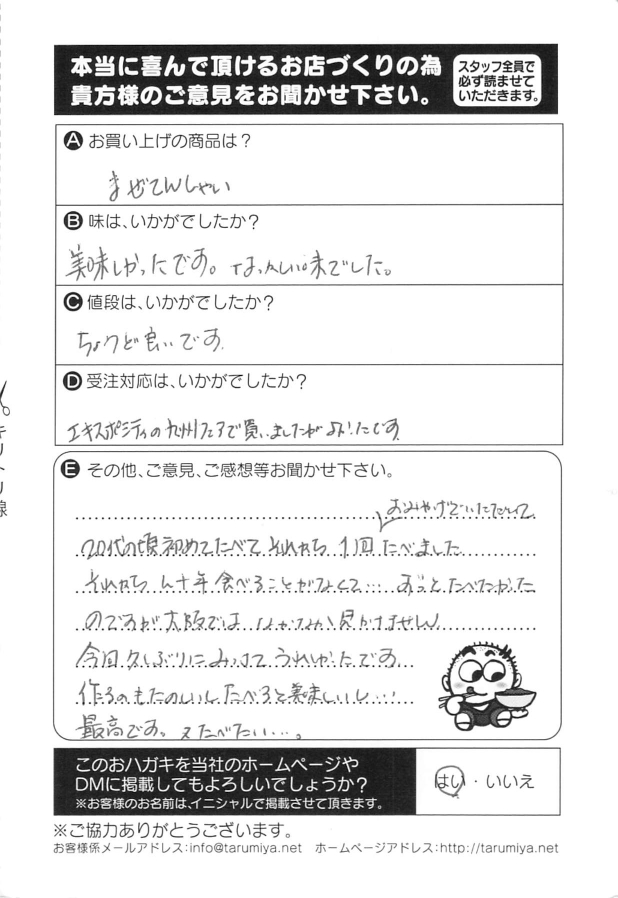 本当に喜んで頂けるお店づくりの為
貴方様のご意見をお聞かせ下さい。
スタッフ全員で
必ず読ませて
いただきます。
A お買い上げの商品は?
まぜてんしゃい
B 味は、いかがでしたか?
美味しかったです。なつかしい味でした。
C 値段は、いかがでしたか?
ちょうど良いです
D 受注対応は、いかがでしたか?
エキスポシティの九州フェアで買いましたがよかったです
E その他、ご意見、ご感想等お聞かせ下さい。
おみやげでいただいて
20代の頃初めてたべて それから 1回 たべました
それから 八十年 食べることがなくて… ずっと たべたかった
のですが 大阪では なかなか 見かけません
今回 久しぶりに みつけて うれしかったです
作るのもたのしいし たべると美味しいし…
最高です。又 たべたい…。
このおハガキを当社のホームページや
DMに掲載してもよろしいでしょうか?
※お客様のお名前は、イニシャルで掲載させて頂きます。
はい・いいえ
※ご協力ありがとうございます。
お客様係メールアドレス:info@tarumiya.net ホームページアドレス:http://tarumiya.net
キリトリ線